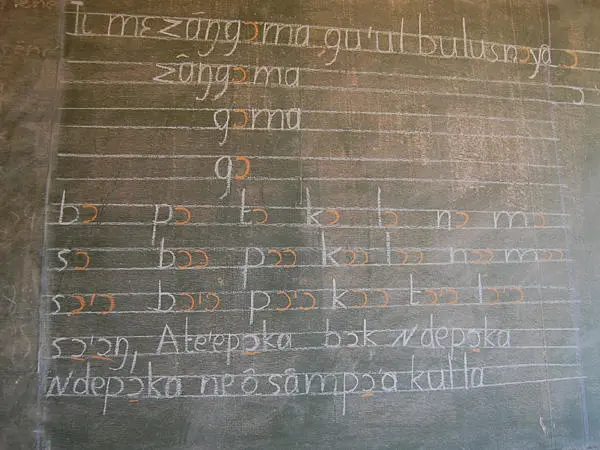 Tɩ mɛ zãŋgɔma, gu'ul bulusnɔya ɔ
zãŋgɔma
gɔma
gɔ
bɔ pɔ tɔ kɔ lɔ nɔ mɔ
sɔ bɔɔ pɔɔ kɔɔ lɔɔ nɔɔ mɔɔ
sɔ'ɔ bɔ'ɔ pɔ'ɔ kɔɔ tɔɔ lɔ'ɔ
sɔ'ɔŋ, Ate'epɔka bɔk N'depɔka
N'depɔka ne ô sâmpɔ'a kulta